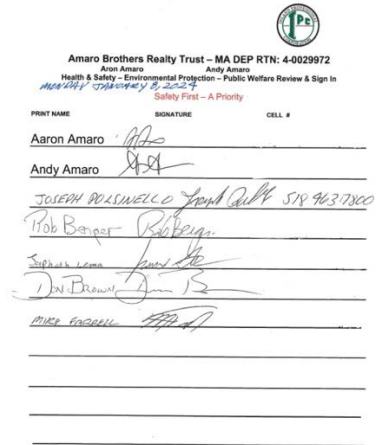 Amaro Brothers Realty Trust – MA DEP RTN: 4-0029972
Aron Amaro Andy Amaro
Health & Safety – Environmental Protection – Public Welfare Review & Sign In
MONDAY JANUARY 8, 2024
Safety First – A Priority
PRINT NAME SIGNATURE CELL #
Aaron Amaro
Andy Amaro
JOSEPH POLSINELLO 518 963-7800
Rob Berger
Lema
DON BROWN
MIKE FARRELL